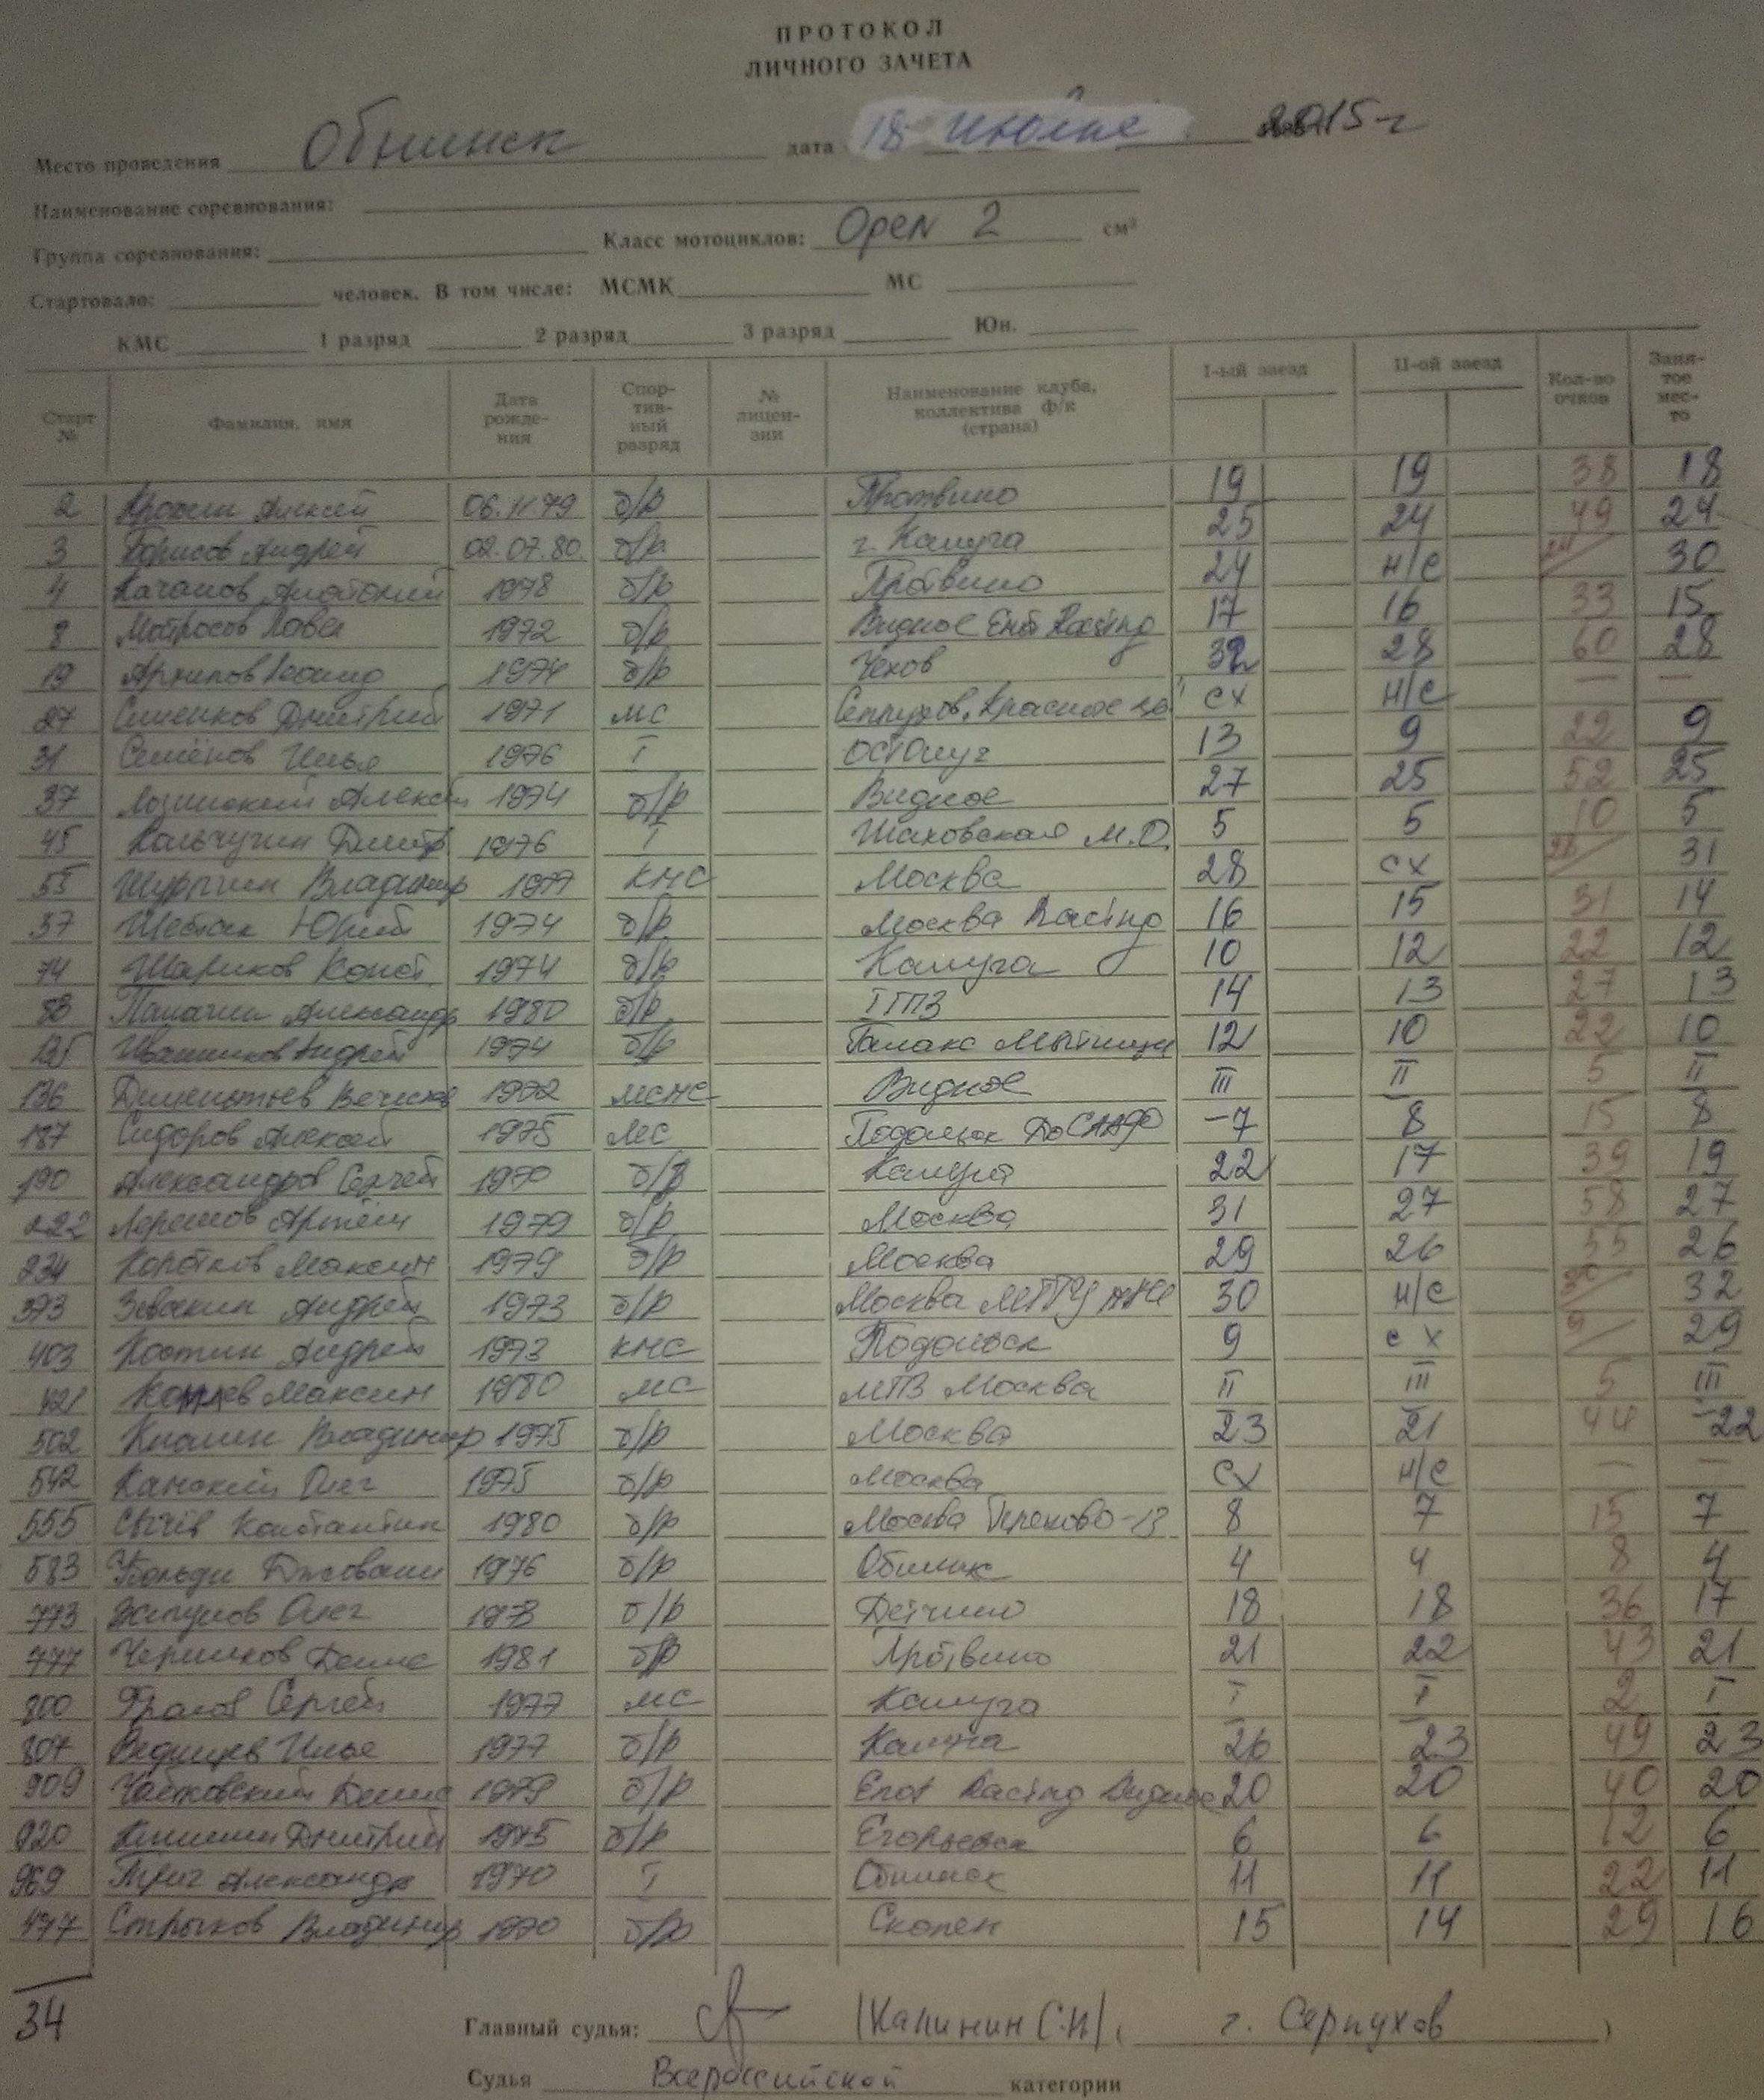 ПРОТОКОЛ
ЛИЧНОГО ЗАЧЕТА
Место проведения Обнинск дата 18 июля 2015 г
Наименование соревнования:
Группа соревнования: Класс мотоциклов: Open 2 см³
Стартовало: человек. В том числе: МСМК МС
КМС 1 разряд 2 разряд 3 разряд Юн.
Старт № Фамилия, имя Дата рождения Спортивный разряд № лицензии Наименование клуба, коллектива ф/к (страна) I-ый заезд II-ой заезд Кол-во очков Занятое место
2 Алексей 06.11.79 б/р Протвино 19 19 38 18
3 Борисов Андрей 02.07.80 б/р г. Калуга 25 24 49 24
4 Качанов Анатолий 1978 б/р Протвино 24 н/с 24 30
8 Матросов Павел 1972 б/р Видное Racing 17 16 33 15
19 Архипов Леонид 1974 б/р Чехов 32 28 60 28
27 Дмитрий 1971 мс Серпухов, Красное сх н/с — —
31 Семёнов Илья 1976 I 13 9 22 9
37 Алексей 1974 б/р Видное 27 25 52 25
45 Кольчугин Дмитр 1976 I Шаховская М.О. 5 5 10 5
55 Владимир кмс Москва 28 сх 28 31
37 Шестак Юрий 1974 б/р Москва Racing 16 15 31 14
74 Шариков Конст. 1974 б/р Калуга 10 12 22 12
88 Александр 1980 б/р 14 13 27 13
125 Ивашников Андрей 1974 б/р Мытищи 12 10 22 10
136 1972 Видное III II 5 II
187 Сидоров Алексей 1975 мс Подольск ДОСААФ 7 8 15 8
190 Александров Сергей 1970 б/р Калуга 22 17 39 19
222 Артём 1979 б/р Москва 31 27 58 27
234 Коротков Максим 1979 б/р Москва 29 26 55 26
373 Зевакин Андрей 1973 б/р Москва 30 н/с 30 32
403 Костин Андрей 1973 кмс Подольск 9 с х 9 29
421 Максим 1980 мс Москва II III 5 III
502 Владимир 1975 б/р Москва 23 21 44 22
542 Канский Олег 1975 б/р Москва сх н/с — —
555 Сычёв Константин 1980 б/р Москва 8 7 15 7
583 Джовани 1976 б/р Обнинск 4 4 8 4
773 Олег 1978 б/р Детчино 18 18 36 17
777 Денис 1981 б/р Протвино 21 22 43 21
800 Сергей 1977 мс Калуга I I 2 I
807 Илья 1977 б/р Калуга 26 23 49 23
909 Чайковский Денис 1979 б/р Enot Racing Видное 20 20 40 20
920 Дмитрий 1975 б/р Егорьевск 6 6 12 6
969 Александр 1970 I Обнинск 11 11 22 11
477 Стрыков Владимир 1970 б/р Скопен 15 14 29 16
34
Главный судья: /Калинин С.Н/ ( г. Серпухов )
Судья Всероссийской категории